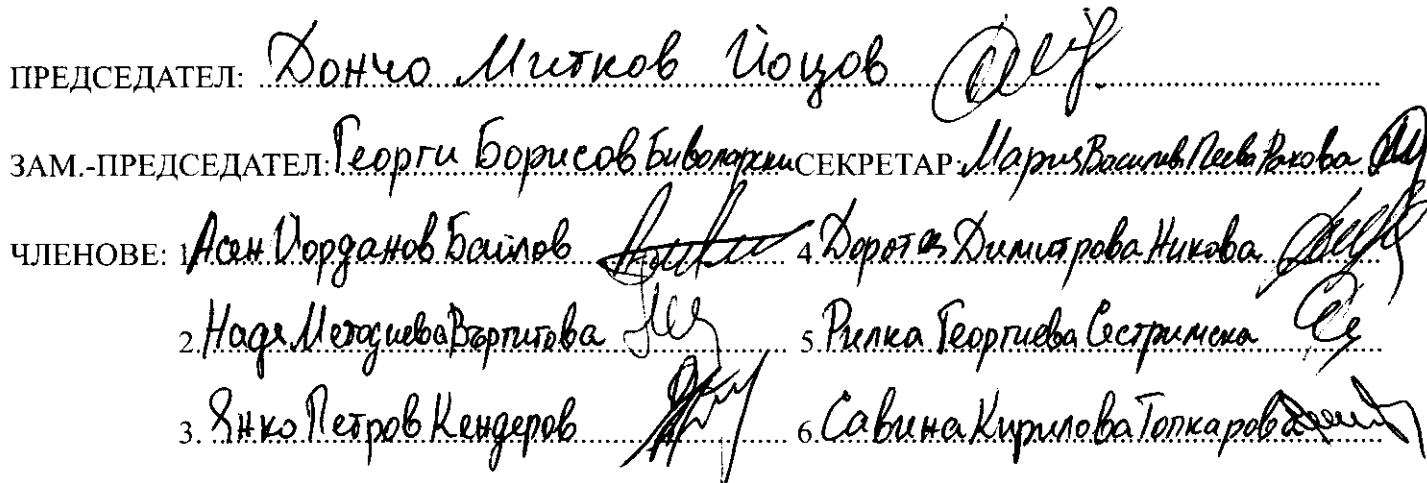 ПРЕДСЕДАТЕЛ: Дончо Митков Йоцов
ЗАМ.-ПРЕДСЕДАТЕЛ: Георги Борисов Биволарски СЕКРЕТАР: Мария Василева Пеева Ракова
ЧЛЕНОВЕ: 1. Асен Йорданов Баилов 4. Доротея Димитрова Никова
2. Надя Методиева Върпитова 5. Рилка Георгиева Сестримска
3. Янко Петров Кендеров 6. Савина Кирилова Топкаров